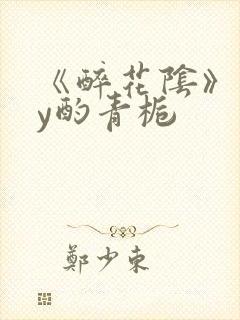 《醉花陰》
y酌青梔
鄭少東